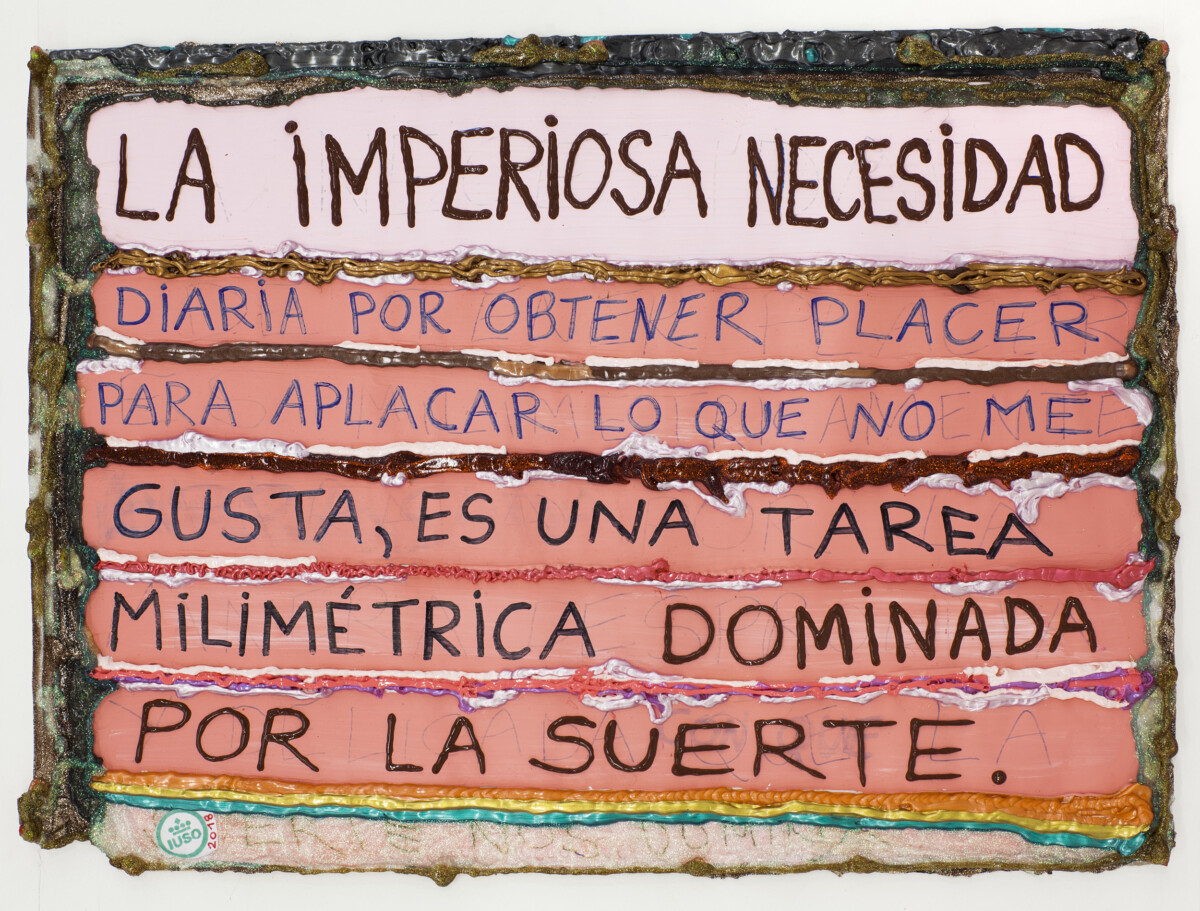 LA iMPERiOSA NECESiDAD
DiARiA POR OBTENER PLACER
PARA APLACAR LO QUE NO ME
GUSTA, ES UNA TAREA
MiLiMÉTRiCA DOMiNADA
POR LA SUERTE.
IUSO 2018